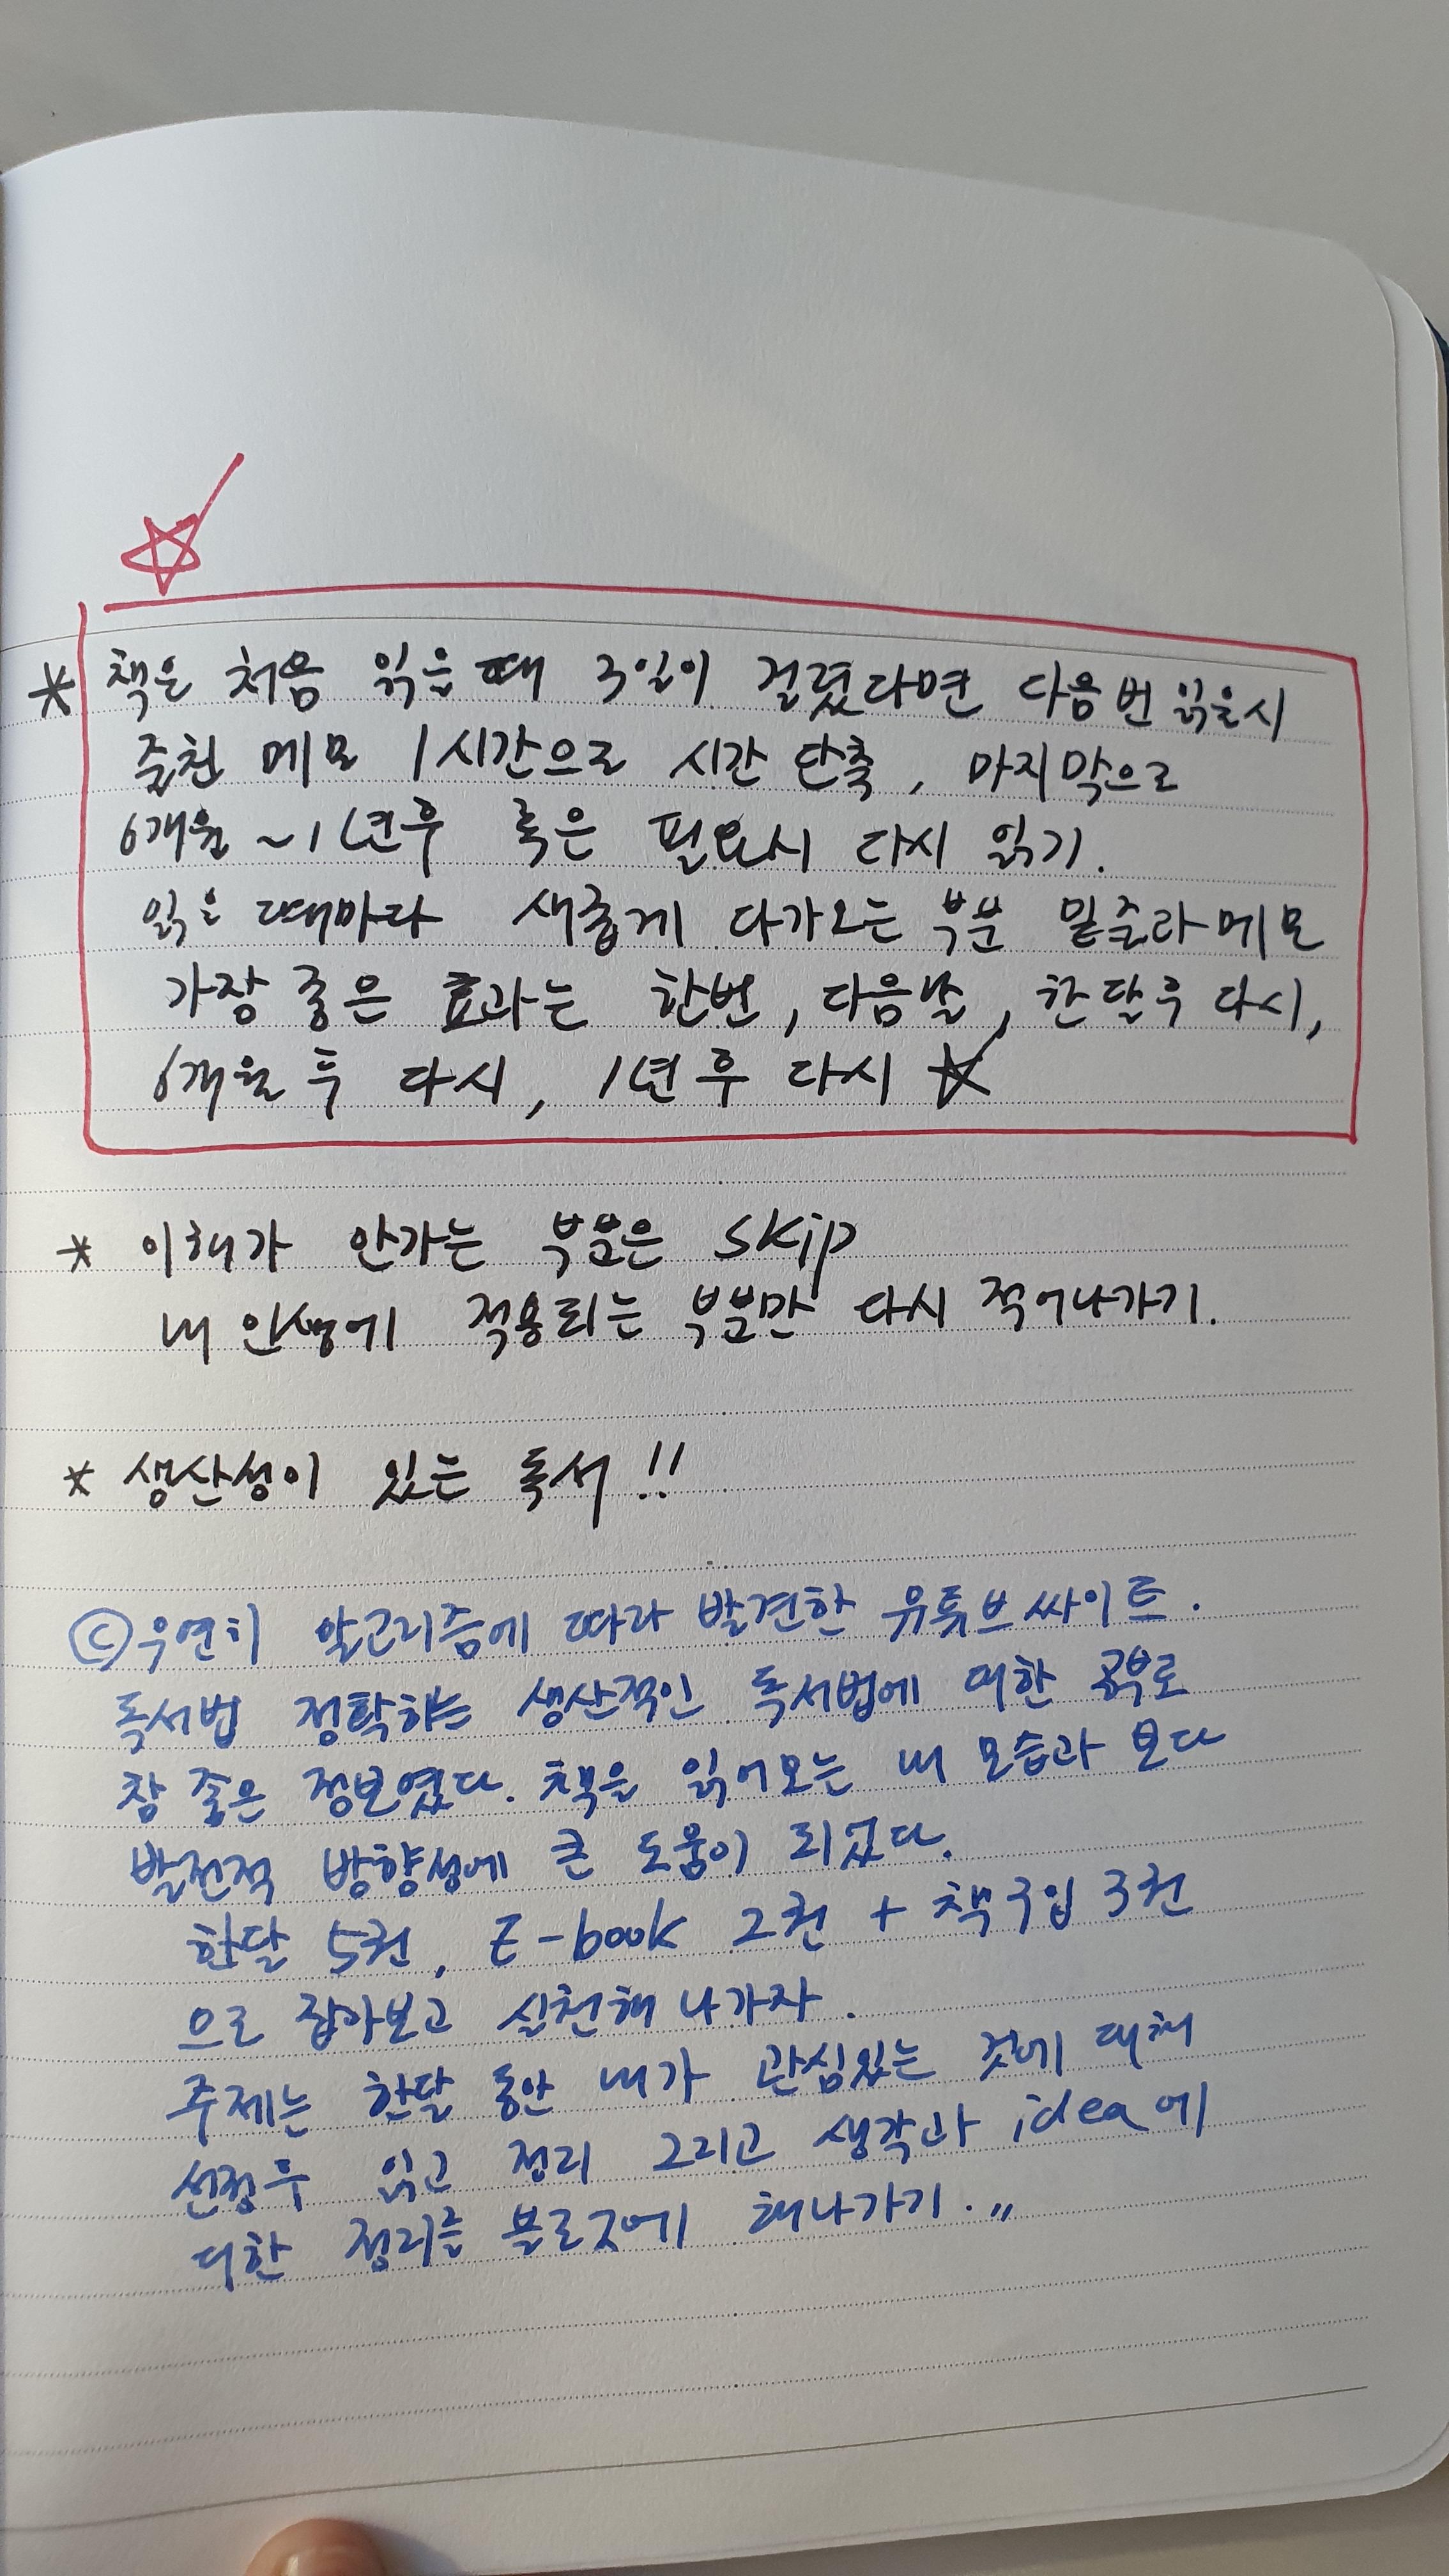 * 책은 처음 읽을때 3일이 걸렸다면 다음번 읽을시
줄친 메모 1시간으로 시간 단축, 마지막으로
6개월 ~1년후 혹은 필요시 다시 읽기.
읽을 때마다 새롭게 다가오는 부분 밑줄과 메모
가장 좋은 효과는 한번, 다음날, 한달후 다시,
6개월 후 다시, 1년 후 다시 ☆
* 이해가 안가는 부분은 skip
내 인생에 적용되는 부분만 다시 적어나가기.
* 생산성이 있는 독서!!
ⓒ 우연히 알고리즘에 따라 발견한 유튜브싸이트.
독서법 정확하는 생산적인 독서법에 대한 공부로
참 좋은 정보였다. 책을 읽어오는 내 모습과 보다
발전적 방향성에 큰 도움이 되었다.
한달 5권, E-book 2권 + 책구입 3권
으로 잡아보고 실천해 나가자.
주제는 한달 동안 내가 관심있는 것에 대해
선정후 읽고 정리 그리고 생각과 idea에
대한 정리를 블로그에 해나가기.〃